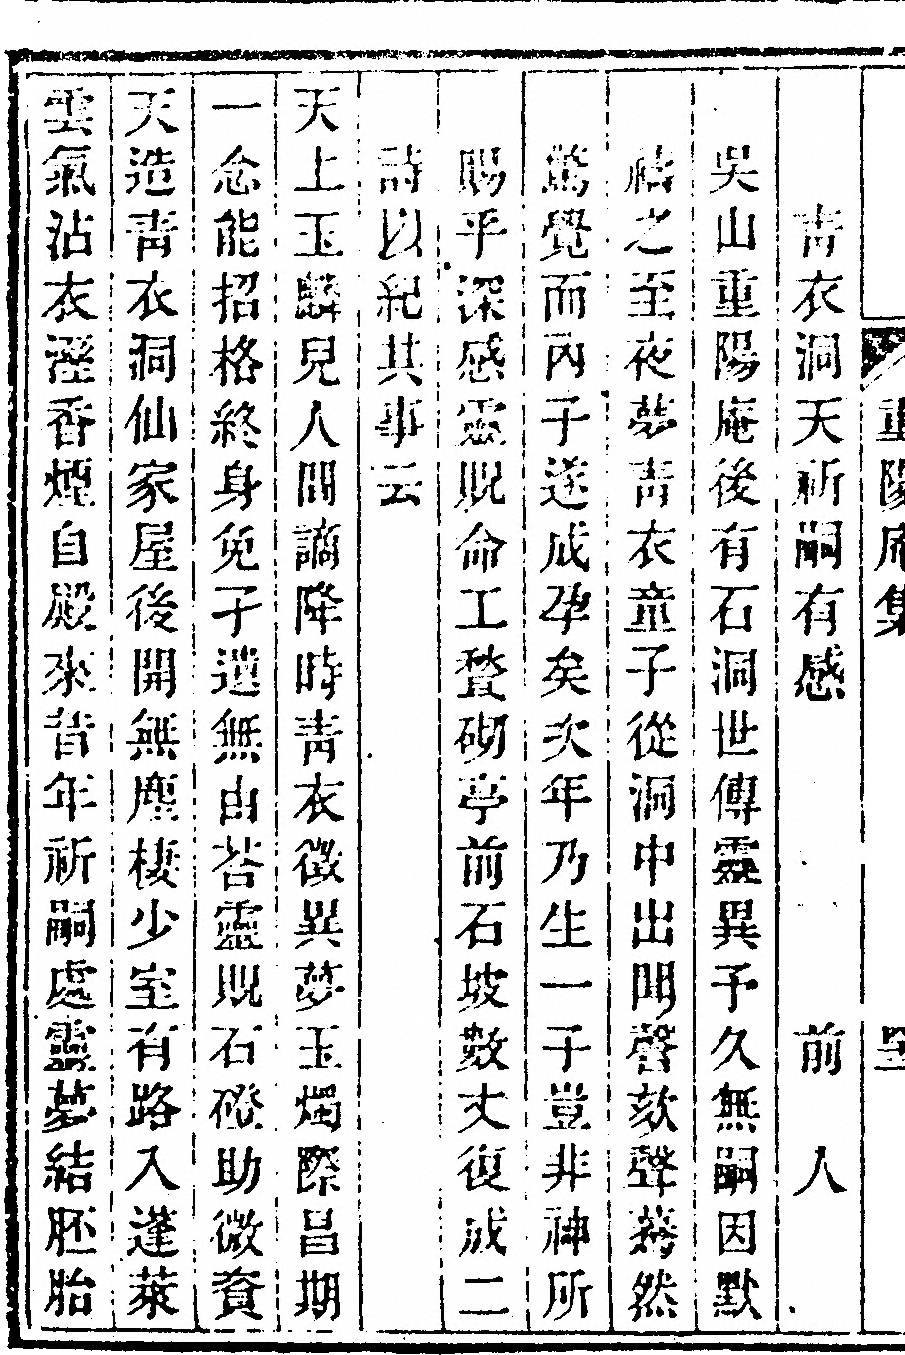 重陽庵集
青衣洞天祈嗣有感 前人
吳山重陽庵後有石洞世傳靈異予久無嗣因默
禱之至夜夢青衣童子從洞中出聞謦欬聲驀然
驚覺而內子遂成孕矣次年乃生一子豈非神所
賜乎深感靈貺命工甃砌亭前石坡數丈復成二
詩以紀其事云
天上玉麟兒人間謫降時青衣徵異夢玉燭際昌期
一念能招格終身免孑遺無由荅靈貺石磴助微資
天造青衣洞仙家屋後開無塵棲少室有路入蓬萊
雲氣沾衣溼香煙自殿來昔年祈嗣處靈夢結胚胎